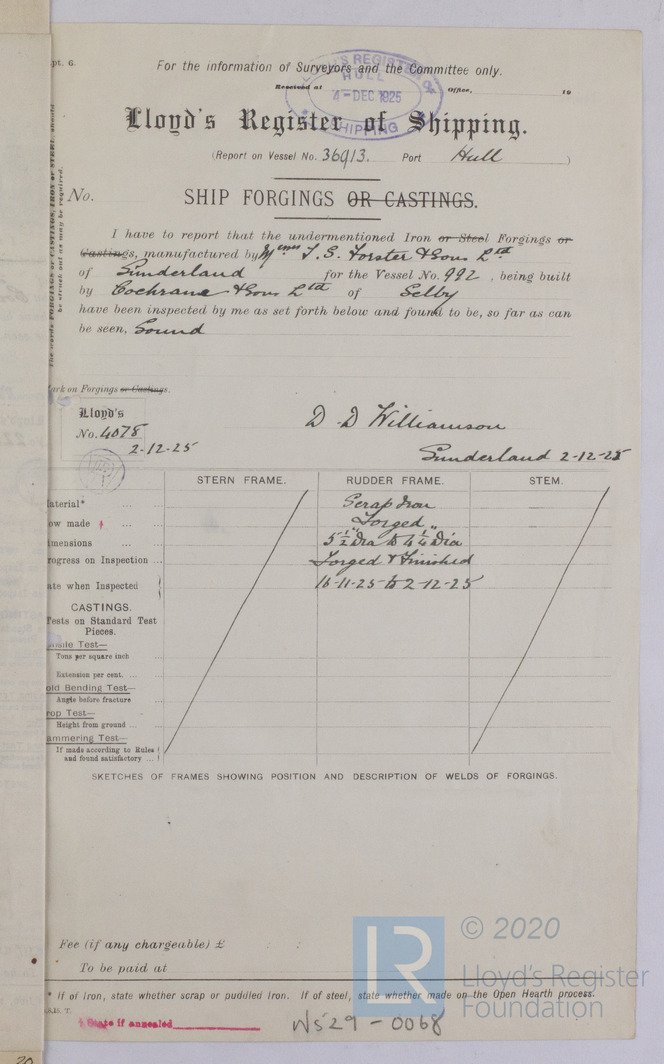 pt. 6.
For the information of Surveyors and the Committee only.
Received at Office, 19
LLOYD'S REGISTER OF SHIPPING
HULL
4-DEC.1925
Lloyd's Register of Shipping.
(Report on Vessel No. 36913. Port Hull )
No. SHIP FORGINGS OR CASTINGS.
The words FORGINGS or CASTINGS, IRON or STEEL should
be struck out as may be required.
I have to report that the undermentioned Iron or Steel Forgings or
Castings, manufactured by Messrs T. S. Forster & Sons Ltd
of Sunderland for the Vessel No. 992 , being built
by Cochrane & Sons Ltd of Selby
have been inspected by me as set forth below and found to be, so far as can
be seen, Sound
ark on Forgings or Castings.
Lloyd's
No. 4078
2-12-25
D. D Williamson
Sunderland 2-12-25
STERN FRAME. RUDDER FRAME. STEM.
aterial* ... ... Scrap Iron
ow made ... ... Forged
imensions ... ... 5½" Dia to 4¼" Dia
rogress on Inspection ... Forged & Finished
ate when Inspected 16-11-25 to 2-12-25
CASTINGS.
Tests on Standard Test
Pieces.
nsile Test—
Tons per square inch ...
Extension per cent. ...
old Bending Test—
Angle before fracture ...
rop Test—
Height from ground ... ...
ammering Test—
If made according to Rules
and found satisfactory ...
SKETCHES OF FRAMES SHOWING POSITION AND DESCRIPTION OF WELDS OF FORGINGS.
Fee (if any chargeable) £ : :
To be paid at
* If of iron, state whether scrap or puddled iron. If of steel, state whether made on the Open Hearth process.
State if annealed
W529-0068
LR
© 2020
Lloyd's Register
Foundation
20